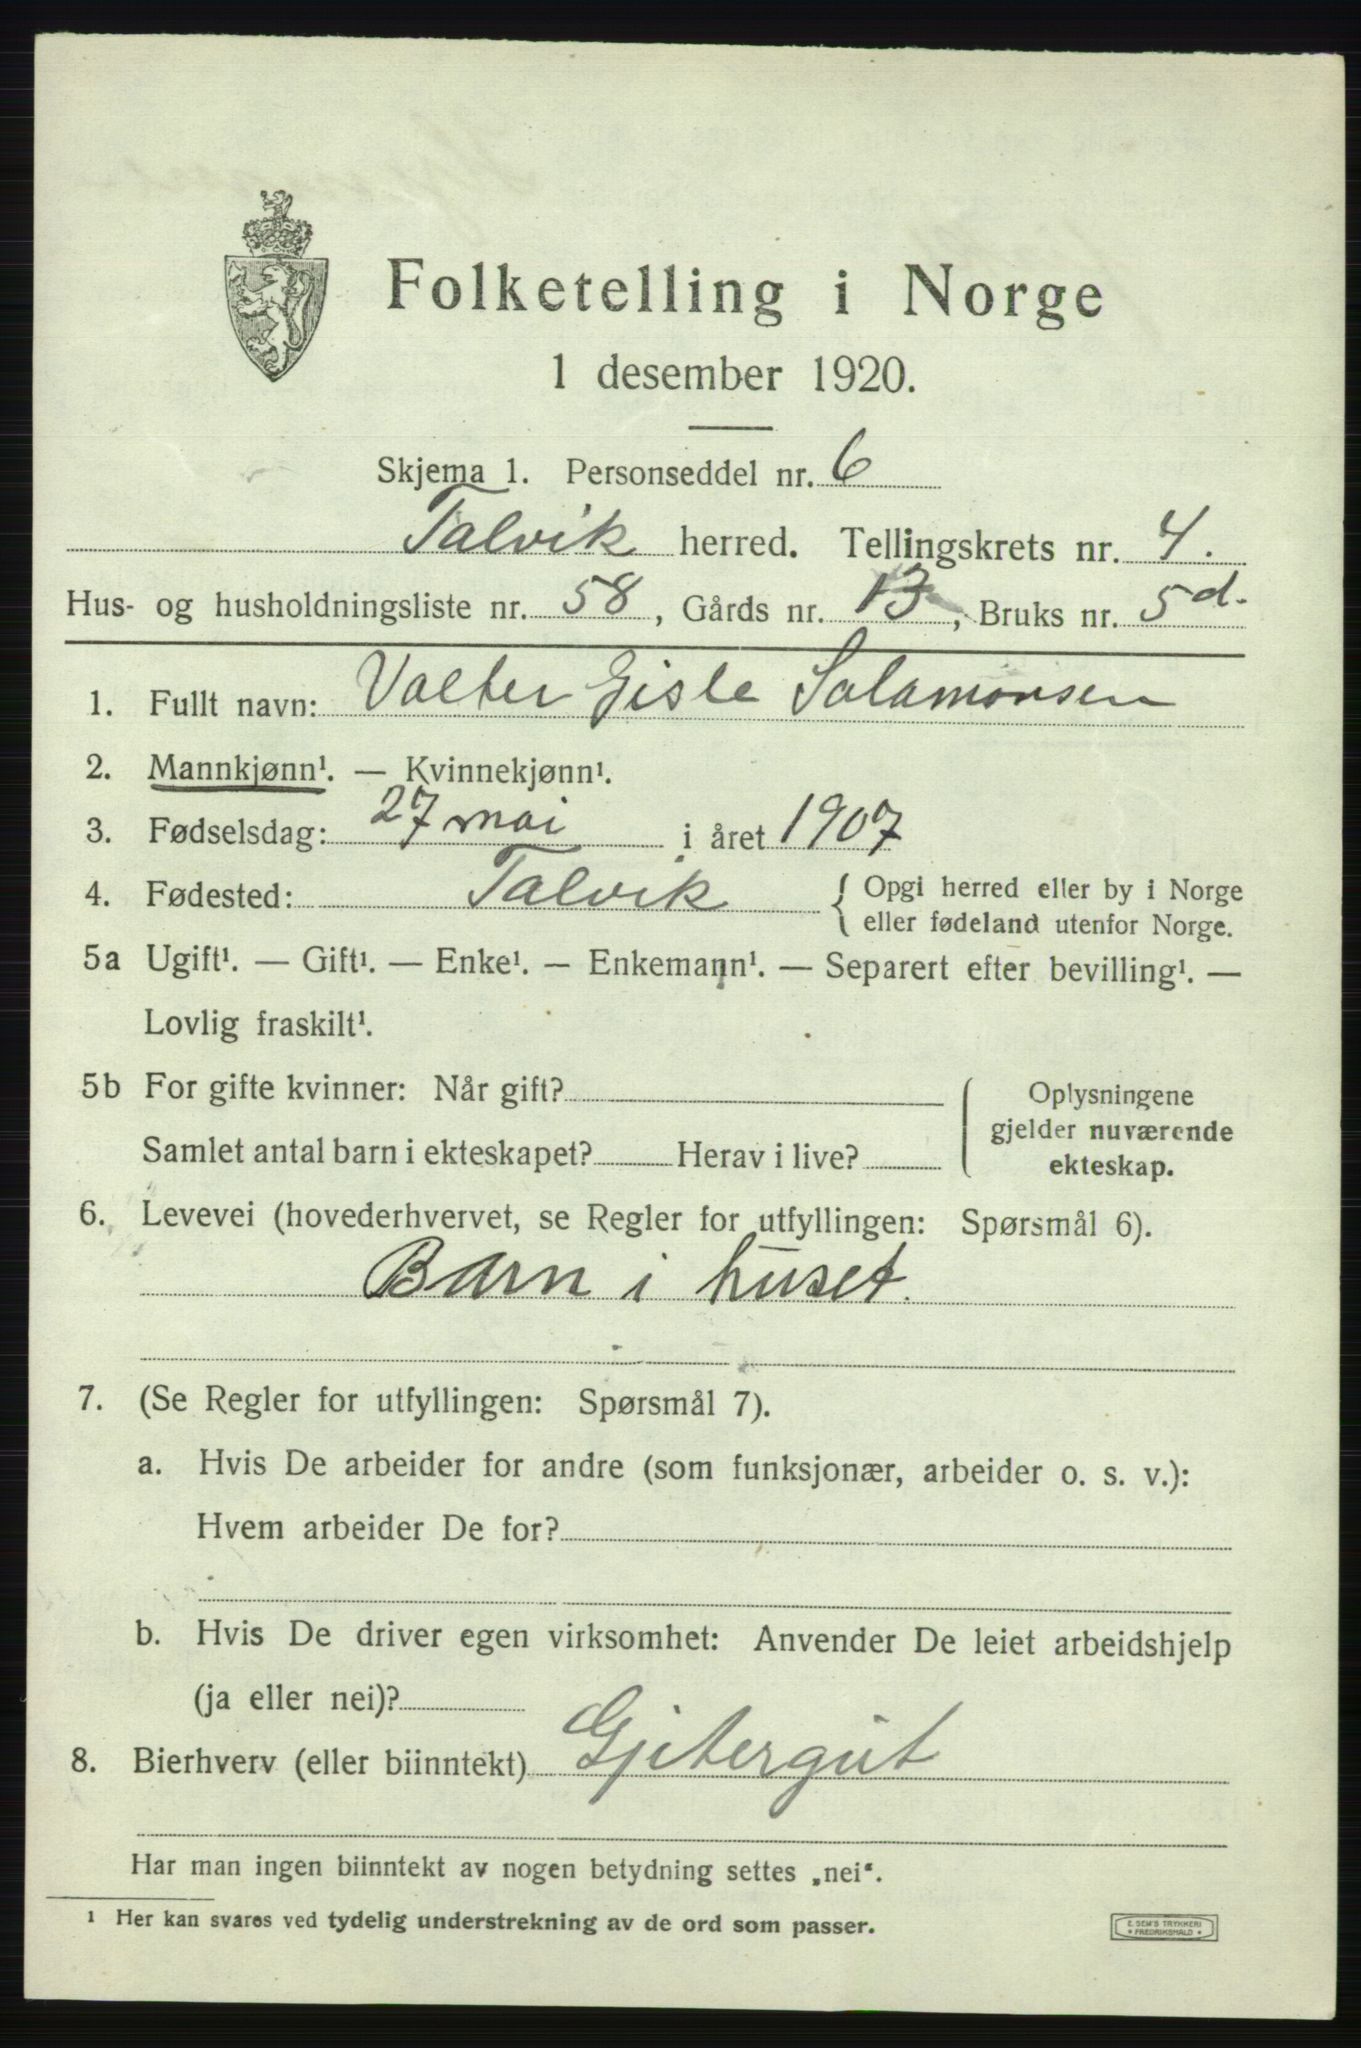 Folketelling i Norge
1 desember 1920.
Skjema 1. Personseddel nr. 6
Talvik herred. Tellingskrets nr. 4.
Hus- og husholdningsliste nr. 58, Gårds nr. 13, Bruks nr. 5 d.
1. Fullt navn: Valter Gisle Salamonsen
2. Mannkjønn¹. — Kvinnekjønn¹.
3. Fødselsdag: 27 mai i året 1907
4. Fødested: Talvik { Opgi herred eller by i Norge
eller fødeland utenfor Norge.
5a Ugift¹. — Gift¹. — Enke¹. — Enkemann¹. — Separert efter bevilling¹. —
Lovlig fraskilt¹.
5b For gifte kvinner: Når gift?
Samlet antal barn i ekteskapet? Herav i live?
Oplysningene
gjelder nuværende
ekteskap.
6. Levevei (hovederhvervet, se Regler for utfyllingen: Spørsmål 6).
Barn i huset.
7. (Se Regler for utfyllingen: Spørsmål 7).
a. Hvis De arbeider for andre (som funksjonær, arbeider o. s. v.):
Hvem arbeider De for?
b. Hvis De driver egen virksomhet: Anvender De leiet arbeidshjelp
(ja eller nei)?
8. Bierhverv (eller biinntekt) Gjitergut
Har man ingen biinntekt av nogen betydning settes „nei“.
¹ Her kan svares ved tydelig understrekning av de ord som passer.
E. SEM'S TRYKKERI
FREDRIKSHALD